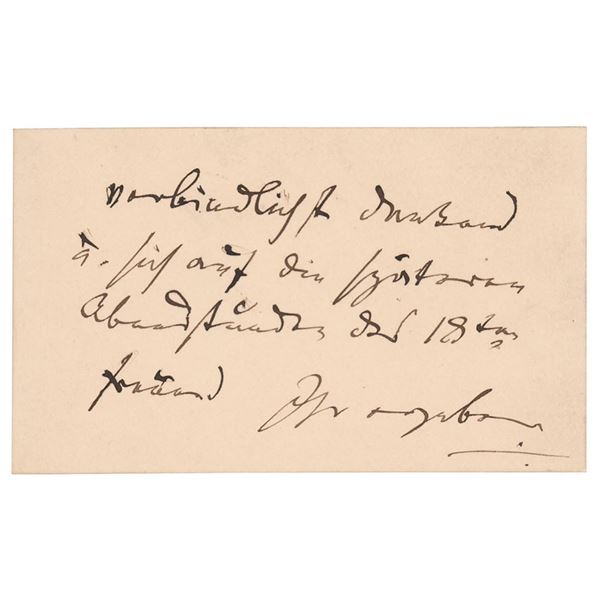 verbindlichst dankend
u. sich auf die späteren
Abendstunden des 18ten
freuend Ihr ergeben